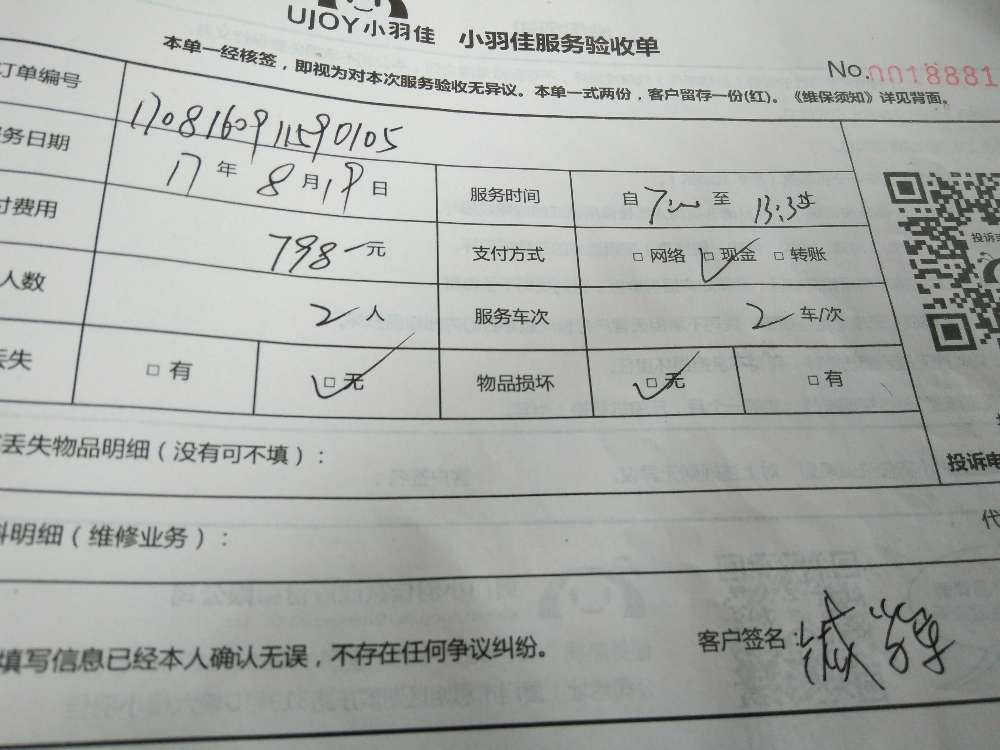 UJOY小羽佳 小羽佳服务验收单
No.0018881
本单一经核签，即视为对本次服务验收无异议。本单一式两份，客户留存一份(红)。《维保须知》详见背面。
订单编号 170816091590105
务日期 17年8月19日 服务时间 自 至 13:3
付费用 798元 支付方式 □网络 □现金 □转账
人数 2人 服务车次 2车/次
丢失 □有 □无 物品损坏 □无 □有
投诉
丢失物品明细（没有可不填）：
投诉电
料明细（维修业务）：
代
填写信息已经本人确认无误，不存在任何争议纠纷。
客户签名：